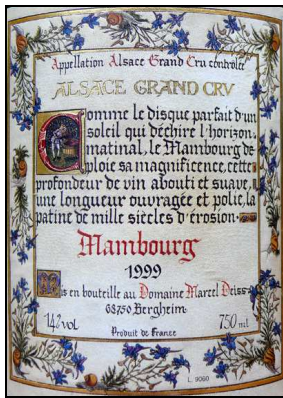 Appellation Alsace Grand Cru contrôlée
ALSACE GRAND CRU
Comme le disque parfait d'un
soleil qui déchire l'horizon
matinal, le Mambourg dé-
ploie sa magnificence, cette
profondeur de vin abouti et suave,
une longueur ouvragée et polie, la
patine de mille siècles d'érosion.
Mambourg
1999
Mis en bouteille au Domaine Marcel Deiss
68750 Bergheim
14%vol
750 ml
Produit de France
L. 9060